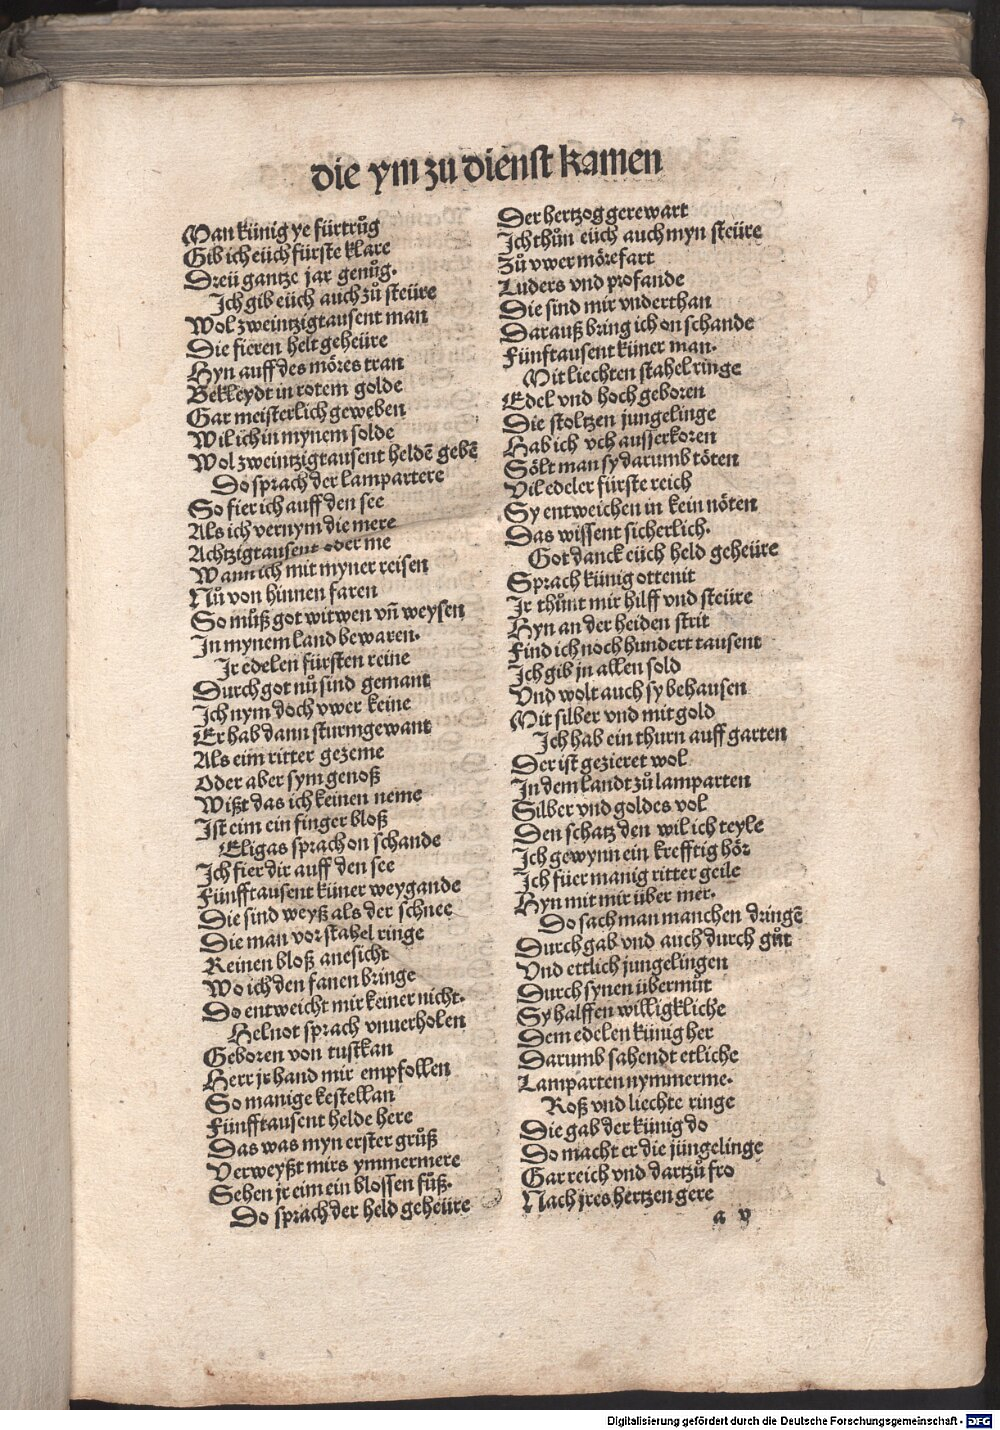 die ym zu dienst kamen
Man künig ye fürtrůg
Gib ich eüch fürste klare
Dreü gantze jar genůg.
Ich gib eüch auch zů steüre
Wol zweintzigtausent man
Die fieren helt geheüre
Hyn auff des möres tran
Bekleydt in rotem golde
Gar meisterlich geweben
Wil ich in mynem solde
Wol zweintzigtausent heldē gebē
Do sprach der lampartere
So fier ich auff den see
Als ich vernym die mere
Achtzigtausent oder me
Wann ich mit myner reisen
Nů von hinnen faren
So můß got witwen vñ weysen
In mynem land bewaren.
Ir edelen fürsten reine
Durch got nů sind gemant
Ich nym doch vwer keine
Er hab dann sturmgewant
Als eim ritter gezeme
Oder aber sym genoß
Wißt das ich keinen neme
Ist eim ein finger bloß
Eligas sprach on schande
Ich fier dir auff den see
Fünfftausent küner weygande
Die sind weyß als der schnee
Die man vor stahel ringe
Keinen bloß anesicht
Wo ich den fanen bringe
Do entweicht mir keiner nicht.
Helnot sprach vnuerholen
Geboren von tustkan
Herr jr hand mir empfollen
So manige kestellan
Fünfftausent helde here
Das was myn erster grůß
Verweyßt mirs ymmermere
Sehen jr eim ein blossen fůß.
Do sprach der held geheüre
Der hertzog gerewart
Ich thůn eüch auch myn steüre
Zů vwer möre fart
Luders vnd profande
Die sind mir vnderthan
Darauß bring ich on schande
Fünftausent küner man.
Mit liechten stahel ringe
Edel vnd hoch geboren
Die stoltzen jungelinge
Hab ich vch ausserkoren
Sölt man sy darumb töten
Vil edeler fürste reich
Sy entweichen in kein nöten
Das wissent sicherlich.
Got danck eüch held geheüre
Sprach künig ottenit
Ir thůnt mir hilff vnd steüre
Hyn an der heiden strit
Find ich noch hundert tausent
Ich gib jn allen sold
Vnd wolt auch sy behausen
Mit silber vnd mit gold
Ich hab ein thurn auff garten
Der ist gezieret wol
In dem landt zů lamparten
Silber vnd goldes vol
Den schatz den wil ich teyle
Ich gewynn ein krefftig hör
Ich füer manig ritter geile
Hyn mit mir über mer.
Do sach man manchen dringē
Durch gab vnd auch durch gůt
Vnd ettlich jungelingen
Durch synen übermůt
Sy halffen willigkliche
Dem edelen künig her
Darumb sahendt etliche
Lamparten nymmerme.
Roß vnd liechte ringe
Die gab der künig do
Do macht er die jüngelinge
Gar reich vnd dartzů fro
Nach jres hertzen gere
a v
Digitalisierung gefördert durch die Deutsche Forschungsgemeinschaft - DFG